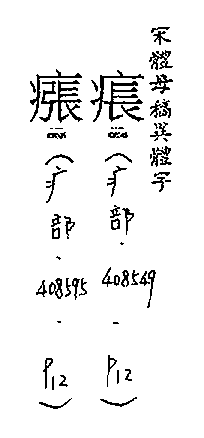 宋體母稿異體字
痮（疒部·408549·P12）
瘬（疒部·408595·P12）